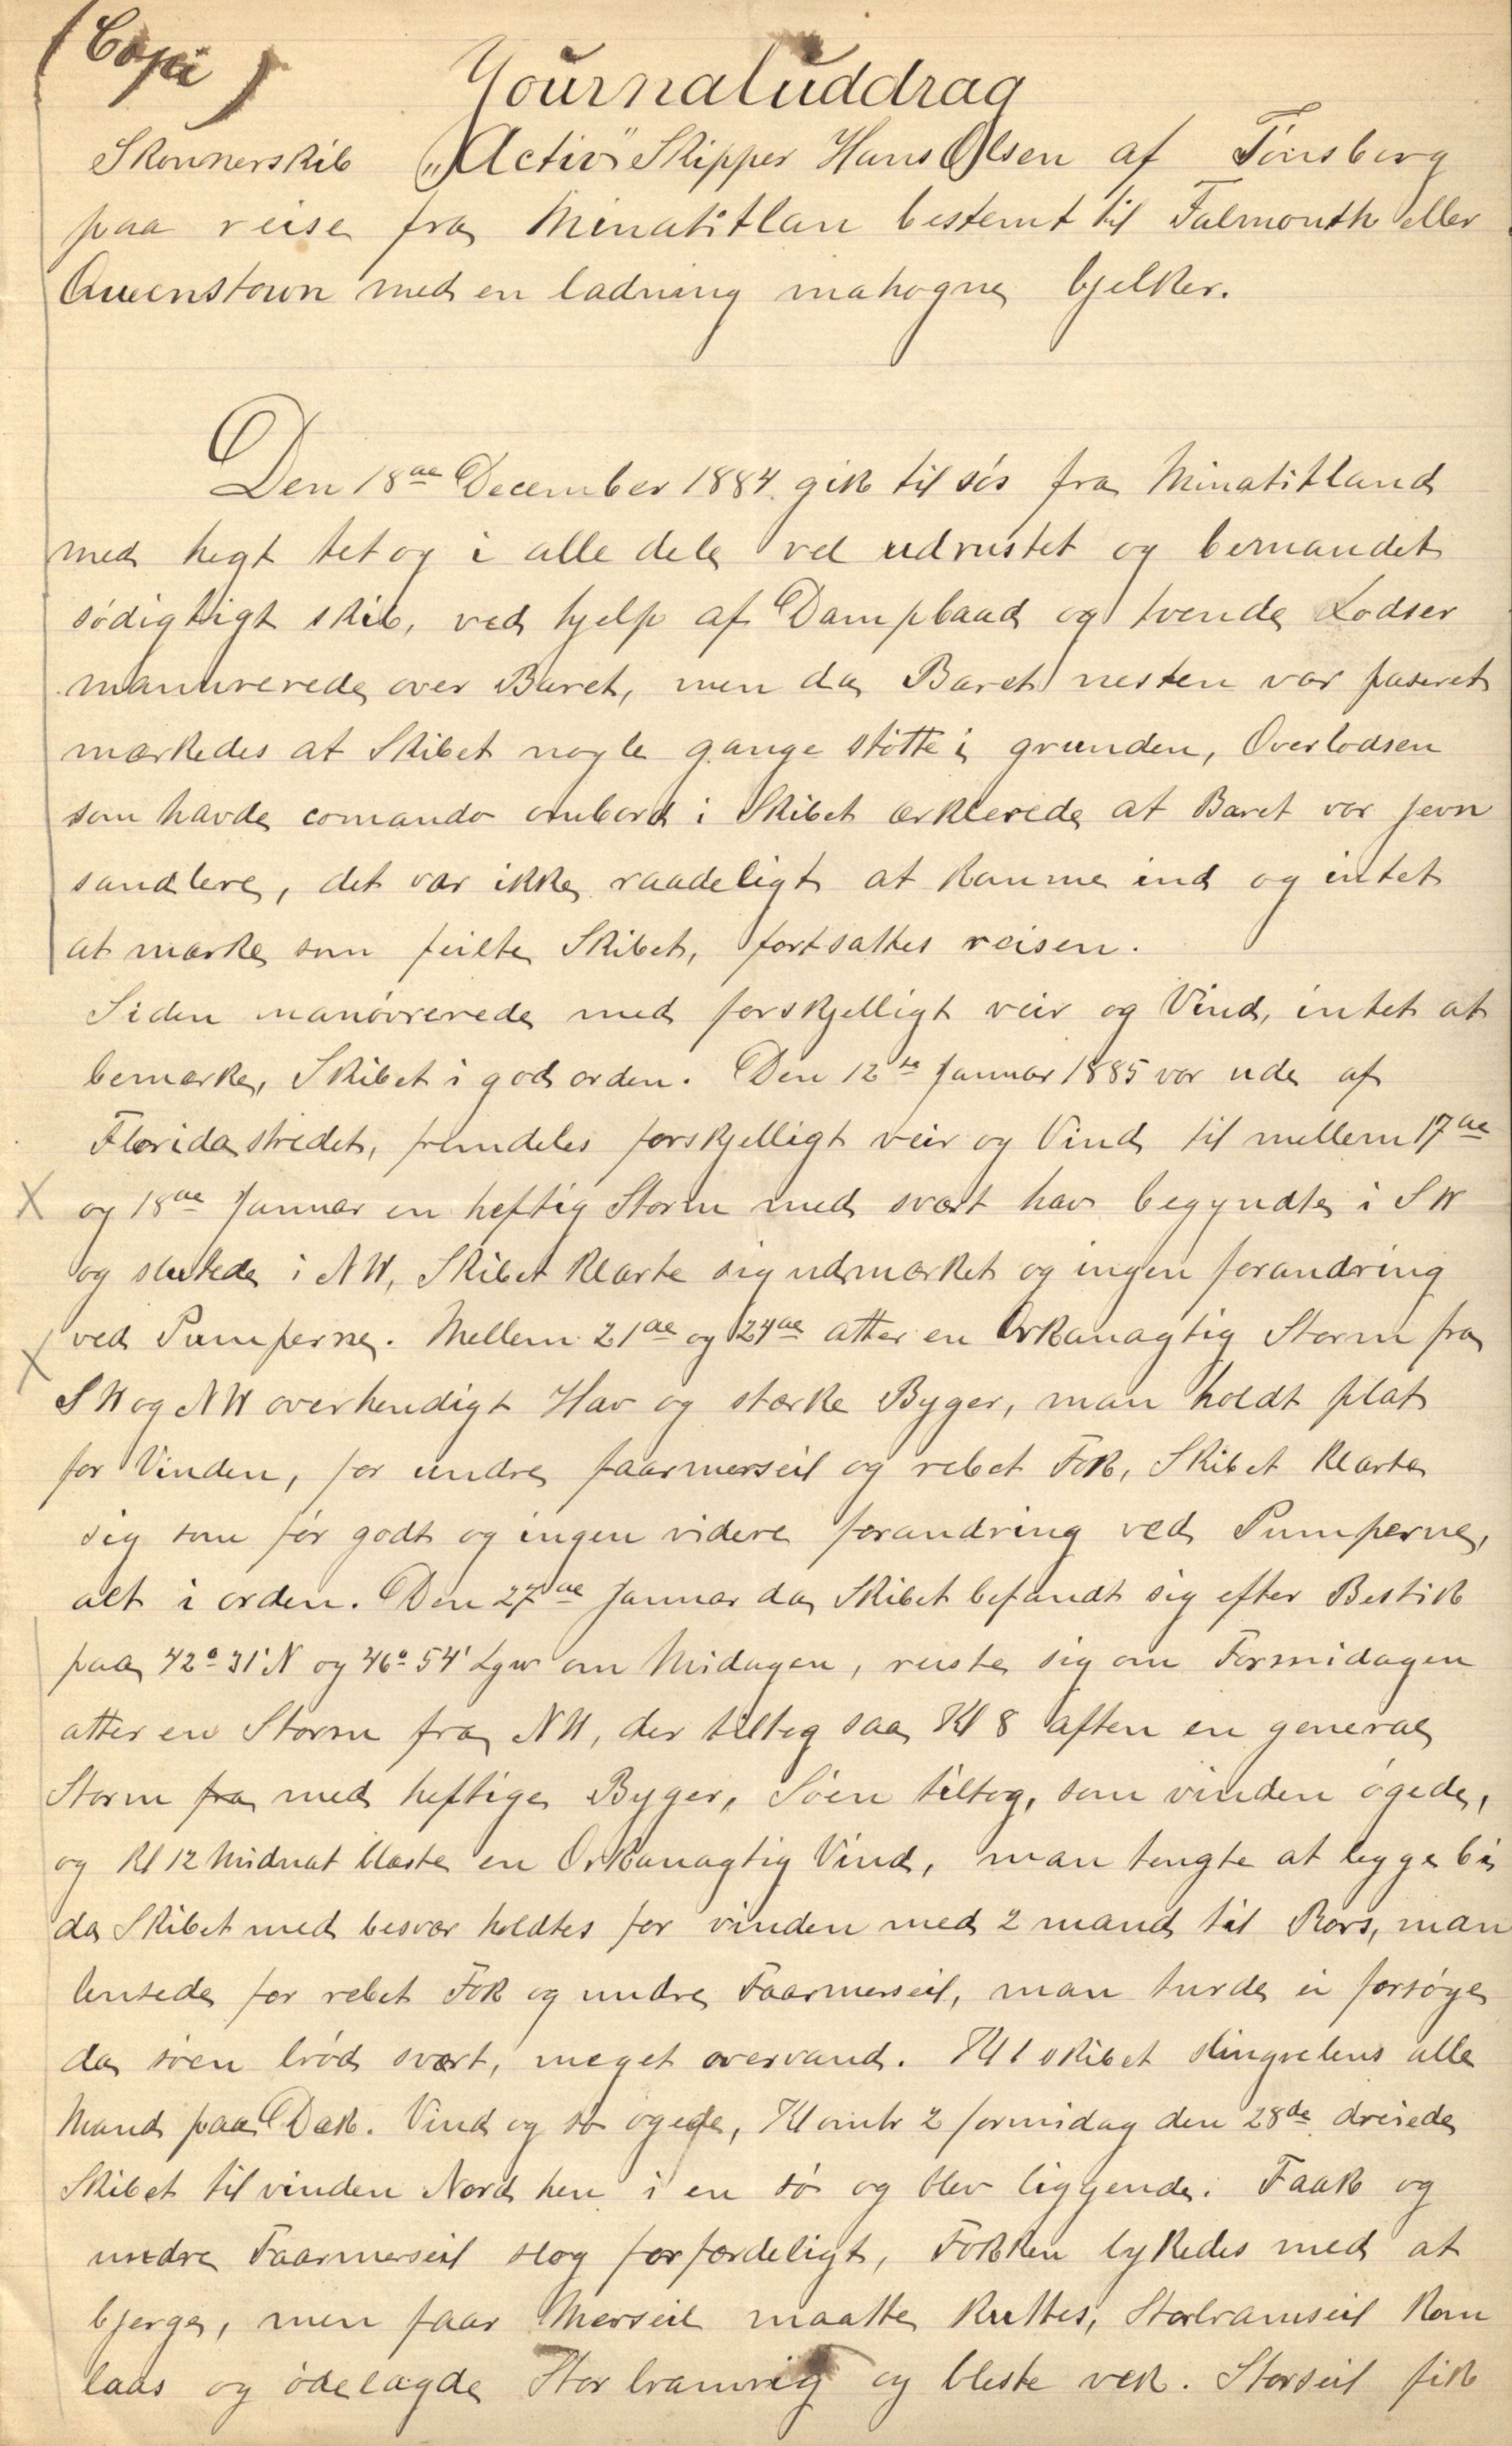 (Copi)
Journaluddrag
Skonnerskib "Activ" Skipper Hans Olsen af Tönsberg
paa reise fra Minatitlan bestemt til Falmouth eller
Queenstown med en ladning mahogne bjelker.
Den 18de December 1884 gik til sös fra Minatitland
med hegt tet og i alle dele vel udrustet og bemandet
södigtigt skib, ved hjelp af Dampbaad og tvende Lodser
manuvrerede over Baret, men da Baret nesten var paseret
mærkedes at Skibet nogle gange stötte i grunden, Overlodsen
som havde comando ombord i Skibet ærklerede at Baret var jevn
sandlere, det var ikke raadeligt at komme ind og intet
at mærke som feilte Skibet, fortsattes reisen.
Siden manövrerede med forskjelligt veir og Vind, intet at
bemærke, Skibet i god orden. Den 12te Januar 1885 var ude af
Florida stredet, fremdeles forskjelligt veir og Vind til mellem 17de
X og 18de Januar en heftig Storm med svært hav begyndte i SW
og slutede i NW, Skibet klarte sig udmærket og ingen forandring
X ved Pumperne. Mellem 21de og 24de atter en Orkanagtig Storm fra
SW og NW overhendigt Hav og stærke Byger, man holdt plat
for Vinden, for undre faarmerseil og rebet Fok, Skibet klarte
sig som för godt og ingen videre forandring ved Pumperne,
alt i orden. Den 27de Januar da Skibet befandt sig efter Bestik
paa 42° 31' N og 46° 54' Lgw om Midagen, reiste sig om Formidagen
atter en Storm fra NW, der tiltog saa Kl 8 aften en general
Storm fra med heftige Byger, Söen tiltog, som vinden ögede,
og Kl 12 Midnat blæste en Orkanagtig Vind, man tengte at legge bi
da Skibet med besvær holdtes for vinden med 2 mand til Rors, man
lensede for rebet Fok og undre Faarmerseil, man turde ei forsöge
da söen bröd svært, meget overvand. Kl 1 skibet slingrelens alle
Mand paa Dæk. Vind og sö ögede, Kl omtr 2 formidag den 28de dreiede
Skibet til vinden Nord hen i en sö og blev liggende. Faak og
undre Faarmerseil slog forfærdeligt, Fokken lykedes med at
bjerge, men faar Merseil maatte kuttes, Storbramseil kom
laas og ödelagde Storbramrig og bleste vek. Storseil fik